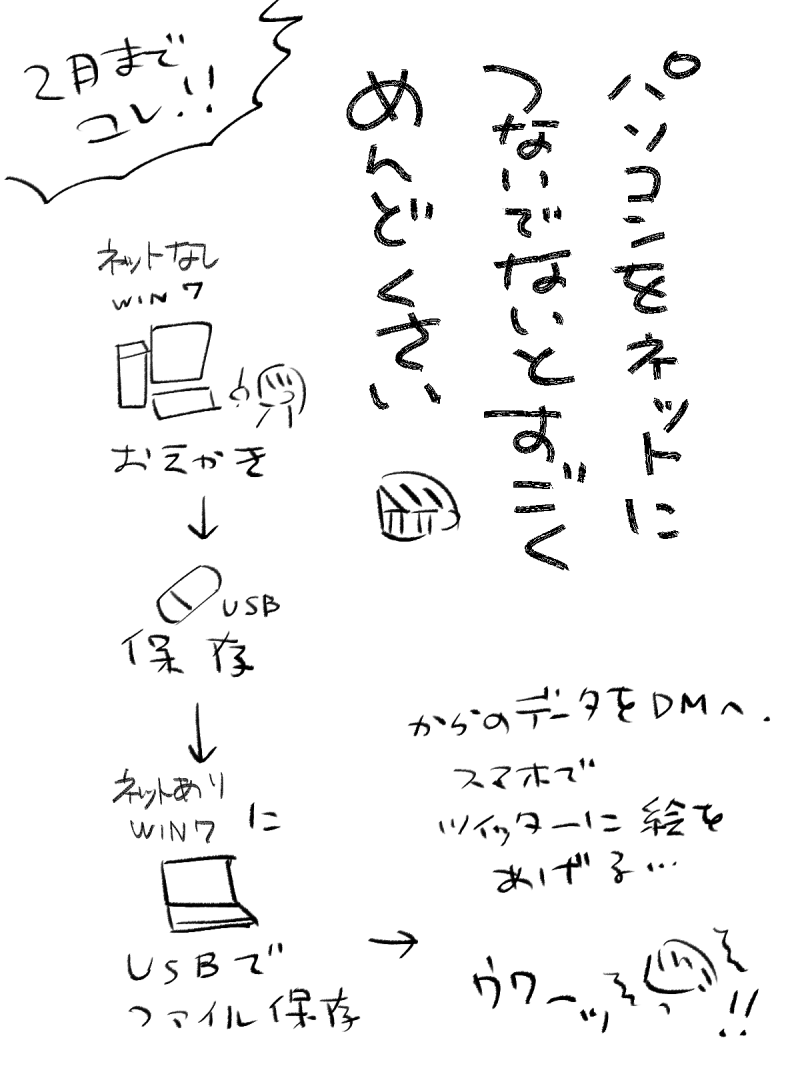 パソコンをネットに
つないでないとすごく
めんどくさい
2月まで
コレ!!
ネットなし
WIN7
おえかき
↓
USB
保存
↓
ネットあり
WIN7に
USBで
ファイル保存
→
からのデータをDMへ.
スマホで
ツイッターに絵を
あげる…
ウワーッ!!